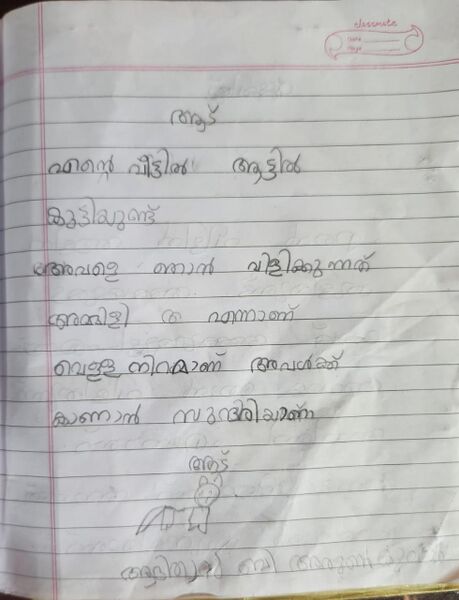 classmate
Date
Page
ആട്
എന്റെ വീട്ടിൽ ആട്ടിൽ
കുട്ടിയുണ്ട്
അവളെ ഞാൻ വിളിക്കുന്നത്
അമ്മിളി എന്നാണ്
വെള്ള നിറമാണ് അവൾക്ക്
കാണാൻ സുന്ദരിയാണ്
ആട്
ബി